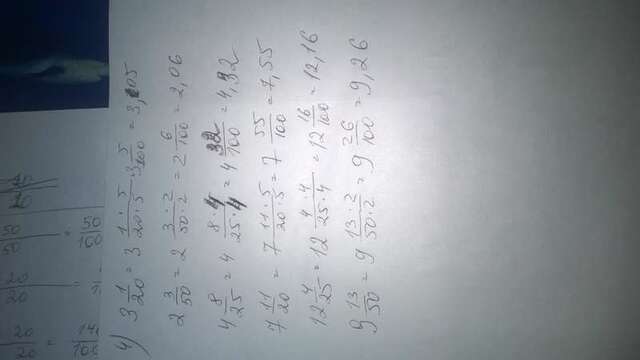 4)
3 1/20 = 3 1·5/20·5 = 3 5/100 = 3,05
2 3/50 = 2 3·2/50·2 = 2 6/100 = 2,06
4 8/25 = 4 8·4/25·4 = 4 32/100 = 4,32
7 11/20 = 7 11·5/20·5 = 7 55/100 = 7,55
12 4/25 = 12 4·4/25·4 = 12 16/100 = 12,16
9 13/50 = 9 13·2/50·2 = 9 26/100 = 9,26
50/50 = 50/100
20/20 =
20/20 =